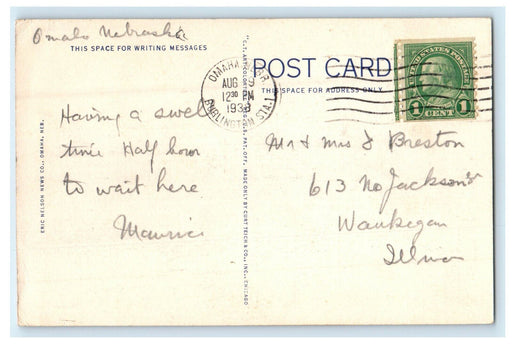 Omaha Nebraska
THIS SPACE FOR WRITING MESSAGES
Having a swel
time Half hour
to wait here
Maurice
ERIC NELSON NEWS CO., OMAHA, NEB.
"C.T. ART-COLORTONE" REG. U.S. PAT. OFF. MADE ONLY BY CURT TEICH & CO., INC., CHICAGO
POST CARD
THIS SPACE FOR ADDRESS ONLY
OMAHA, NEBR.
AUG 9
12 30 PM
BURLINGTON STA.
UNITED STATES POSTAGE
1 CENT 1
Mr & Mrs J Breston
613 No Jackson St
Waukegan
Illinois